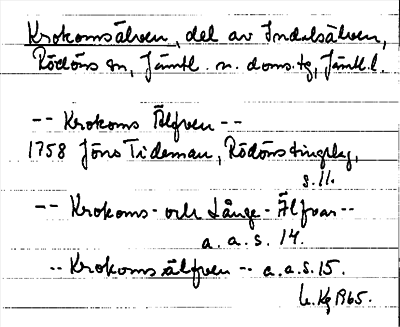 Krokomsälven, del av Indalsälven,
Rödöns sn, Jämtl. n. doms.tg, Jämtl.l.
-- Krokoms Älfven --
1758 Jöns Tideman, Rödöns tingslag,
s.11.
-- Krokoms- och Långe-Älfvar --
a. a. s. 14.
-- Krokomsälfven -- a.a.s.15.
1965.